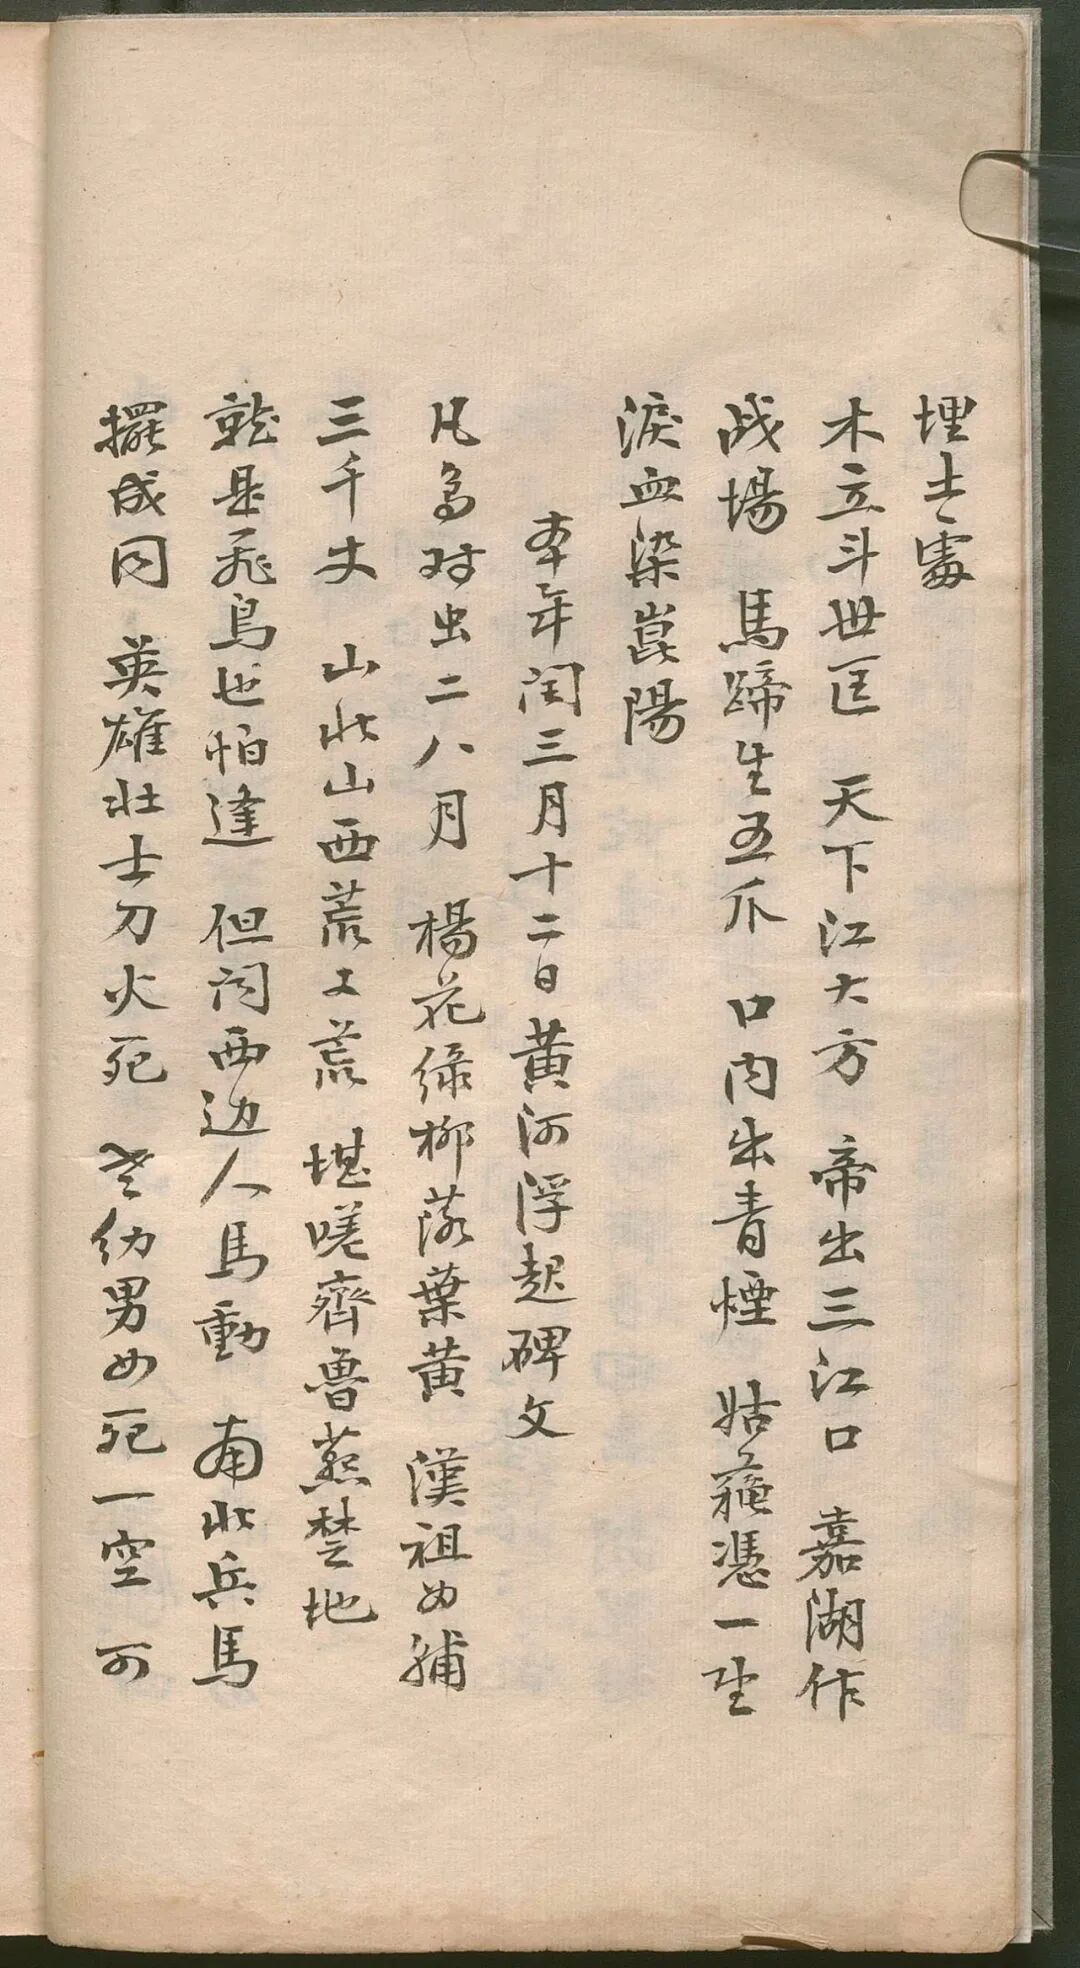 埋土處
木立斗世匡 天下江大方 帝出三江口 嘉湖作
战場 馬蹄生五爪 口内出青煙 姑蘓憑一型
淚血染崑陽
本年闰三月十二日黃河浮起碑文
凡鳥对虫二八月 楊花绿柳落葉黄 漢祖女補
三千丈 山北山西荒又荒 堪嗟齊魯燕楚地
就是飛鳥也怕逢 但闻西边人馬動 南北兵馬
擺成同 英雄壮士刀火死 老幼男女死一空 可